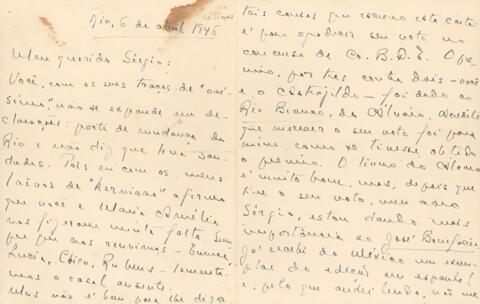 Rio, 6 de abril 1946
Meu querido Sérgio:
Você, com os seus traços de "cas-
simo", não se expande em de-
clarações: parte de mudança do
Rio e não diz que terá sau-
dades. Pois eu com os meus
laivos de "herniano" afirmo
que você e Maria Amélia
nos fizeram muita falta. Sem
pre que nos reunimos -
Lucia, Chico, Rubens - lamenta-
mos o casal ausente.
Mas não é bem para lhe dizer
tais cousas que escrevo esta carta
é para agradecer seu voto no
concurso da Co. B. D. E. O prê-
mio, por tres contra dois - você
e o Astrojildo - foi dado ao
Rio Branco, do Alvaro. Acredite
que merecer o seu voto foi para
mim como se tivesse obtido
o premio. O livro do Alvaro
é muito bom, mas, depois que
tive o seu voto, meu caro
Sérgio, estou dando mais
importância ao José Bonifácio.
Já recebi do Mexico um exem-
plar da edição em espanhol
e, pelo que andei lendo, não me